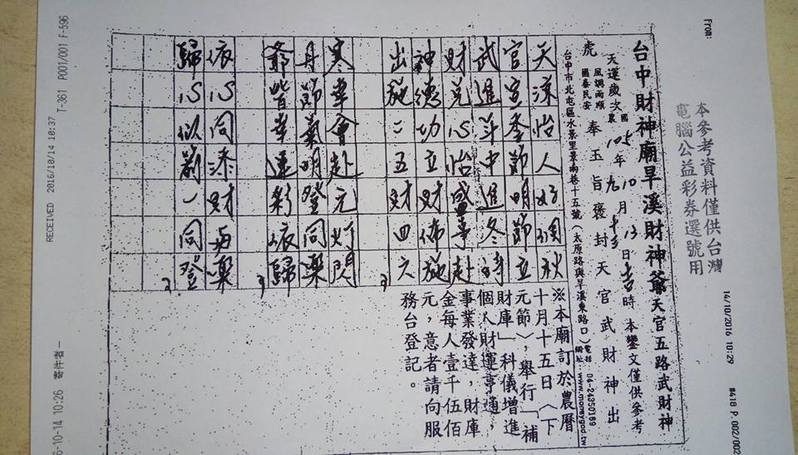 From:
14/10/2016 10:29 #418 P.002/002
本參考資料僅供台灣
電腦公益彩券選號用
台中財神廟旱溪財神爺天官五路武財神
天運歲次 105年 10月 13日 時 本鑾文僅供參考
虎 風調雨順 國泰民安 奉玉旨褒封天官武財神出
台中市北屯區水景里景南巷十五號（太原路與旱溪東路口）電話 網址：www.moneygod.tw
天涼怡人好個秋
官 季節明節立
武進 中進冬時
財 心怡盛事赴
神德功立財佈施
出施二五財四六
寒 會赴元灯閃
丹節 明登同樂
爺皆幸運彩依歸
依心同添財 樂
歸心似箭一同登
※本廟訂於農曆
十月十五日（下
元節），舉行「補
財庫」科儀增進
個人財運亨通，
事業發達，財庫
金每人壹千伍佰
元，意者請向服
務台登記。
RECEIVED 2016/10/14 10:37
T-361 P001/001 F-596
6-10-14 10:26 寄件者-